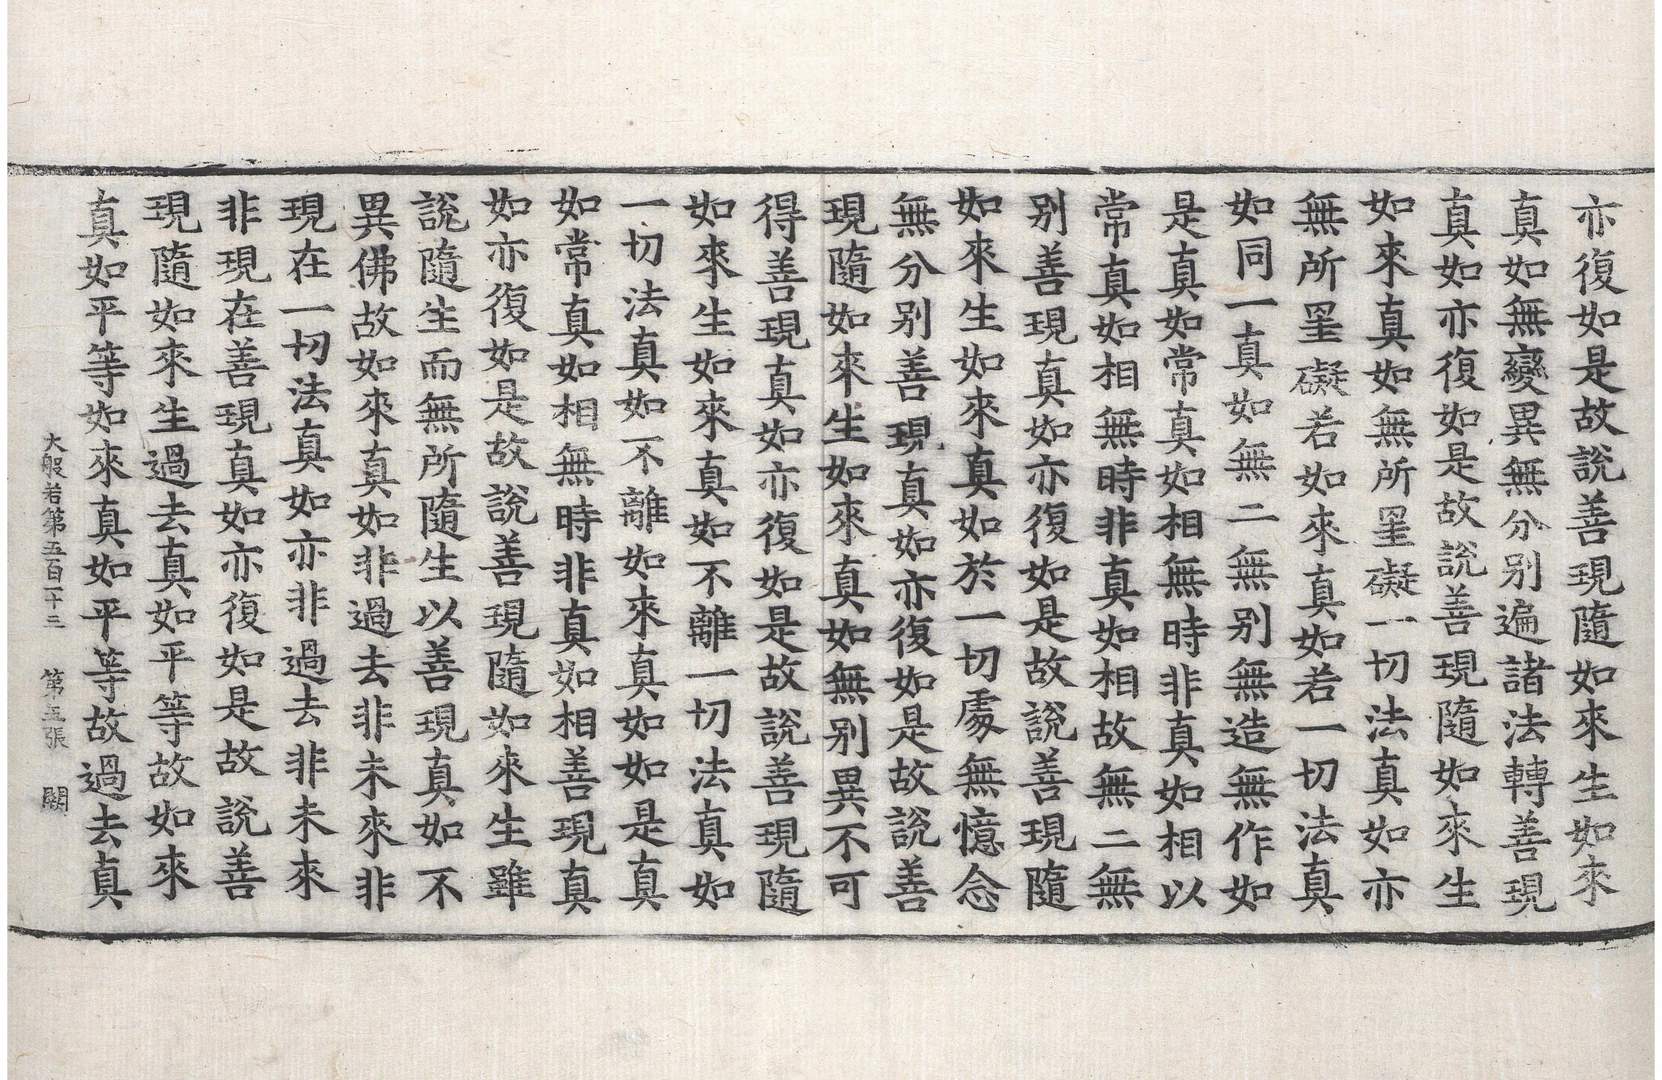 亦復如是故說善現隨如來生如來
真如無變異無分別遍諸法轉善現
真如亦復如是故說善現隨如來生
如來真如無所罣礙一切法真如亦
無所罣礙若如來真如若一切法真
如同一真如無二無別無造無作如
是真如常真如相無時非真如相以
常真如相無時非真如相故無二無
別善現真如亦復如是故說善現隨
如來生如來真如於一切處無憶念
無分別善現真如亦復如是故說善
現隨如來生如來真如無別異不可
得善現真如亦復如是故說善現隨
如來生如來真如不離一切法真如
一切法真如不離如來真如如是真
如常真如相無時非真如相善現真
如亦復如是故說善現隨如來生雖
說隨生而無所隨生以善現真如不
異佛故如來真如非過去非未來非
現在一切法真如亦非過去非未來
非現在善現真如亦復如是故說善
現隨如來生過去真如平等故如來
真如平等如來真如平等故過去真
大般若第五百一十三 第五張 闕